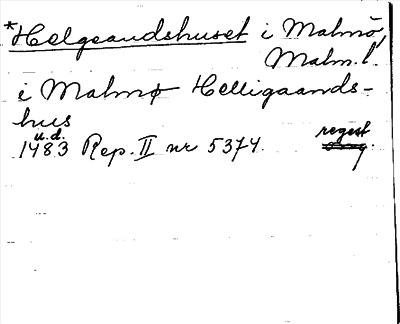 *Helgeandshuset i Malmö,
Malm. l.
i Malmø Helligaands-
hus
u.d.
1483 Rep. II nr 5374. regest